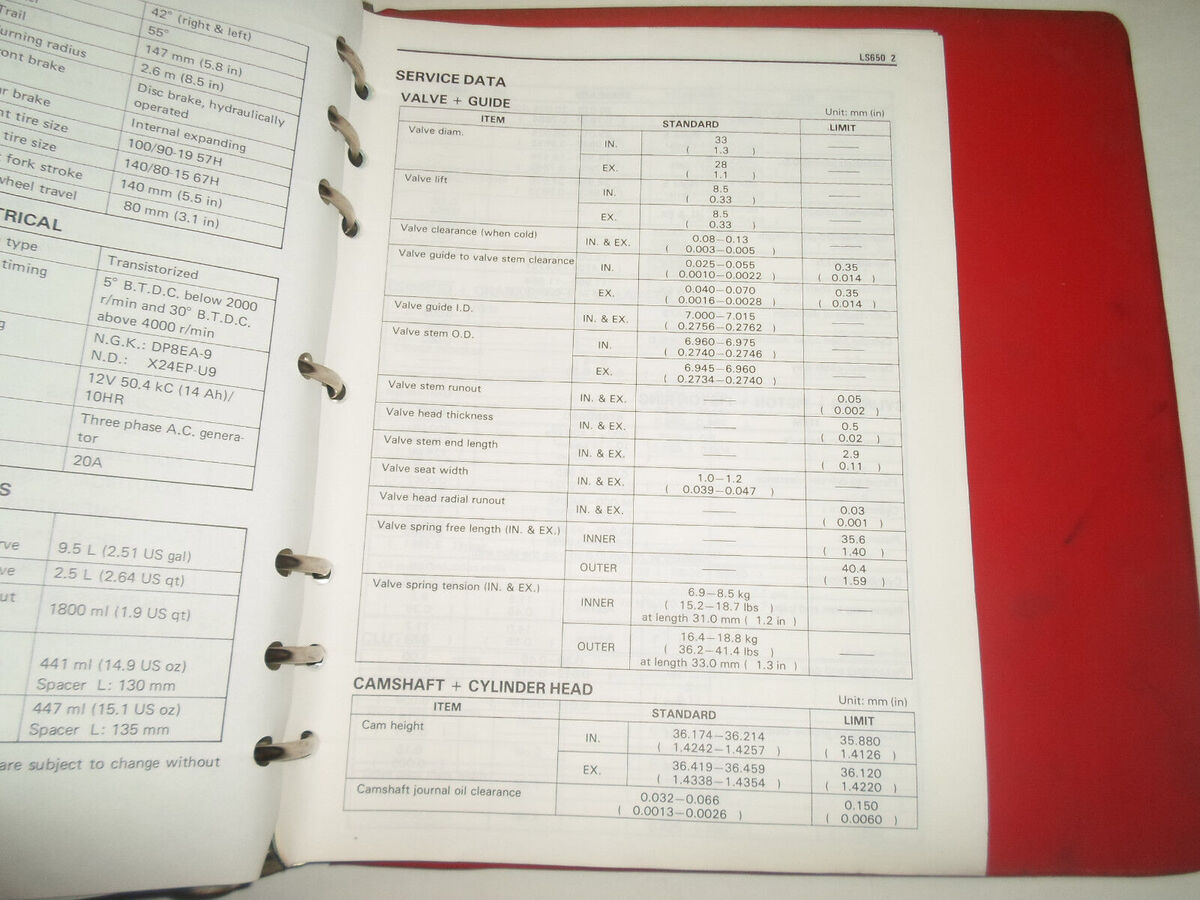 42° (right & left)
Trail
55°
turning radius
147 mm (5.8 in)
front brake
2.6 m (8.5 in)
Disc brake, hydraulically
operated
brake
Internal expanding
tire size
100/90-19 57H
tire size
140/80-15 67H
fork stroke
140 mm (5.5 in)
wheel travel
80 mm (3.1 in)
TRICAL
type
Transistorized
timing
5° B.T.D.C. below 2000
r/min and 30° B.T.D.C.
above 4000 r/min
N.G.K.: DP8EA-9
N.D.: X24EP-U9
12V 50.4 kC (14 Ah)/
10HR
Three phase A.C. genera-
tor
20A
S
rve 9.5 L (2.51 US gal)
ve 2.5 L (2.64 US qt)
ut 1800 ml (1.9 US qt)
441 ml (14.9 US oz)
Spacer L: 130 mm
447 ml (15.1 US oz)
Spacer L: 135 mm
are subject to change without
LS650 2
SERVICE DATA
VALVE + GUIDE Unit: mm (in)
ITEM STANDARD LIMIT
Valve diam. IN. 33
( 1.3 ) ——
EX. 28
( 1.1 ) ——
Valve lift IN. 8.5
( 0.33 ) ——
EX. 8.5
( 0.33 ) ——
Valve clearance (when cold) IN. & EX. 0.08–0.13
( 0.003–0.005 ) ——
Valve guide to valve stem clearance IN. 0.025–0.055 0.35
( 0.0010–0.0022 ) ( 0.014 )
EX. 0.040–0.070 0.35
( 0.0016–0.0028 ) ( 0.014 )
Valve guide I.D. IN. & EX. 7.000–7.015
( 0.2756–0.2762 ) ——
Valve stem O.D. IN. 6.960–6.975
( 0.2740–0.2746 ) ——
EX. 6.945–6.960
( 0.2734–0.2740 ) ——
Valve stem runout IN. & EX. —— 0.05
( 0.002 )
Valve head thickness IN. & EX. —— 0.5
( 0.02 )
Valve stem end length IN. & EX. —— 2.9
( 0.11 )
Valve seat width IN. & EX. 1.0–1.2
( 0.039–0.047 ) ——
Valve head radial runout IN. & EX. —— 0.03
( 0.001 )
Valve spring free length (IN. & EX.) INNER —— 35.6
( 1.40 )
OUTER —— 40.4
( 1.59 )
Valve spring tension (IN. & EX.) INNER 6.9–8.5 kg
( 15.2–18.7 lbs )
at length 31.0 mm ( 1.2 in ) ——
OUTER 16.4–18.8 kg
( 36.2–41.4 lbs )
at length 33.0 mm ( 1.3 in ) ——
CAMSHAFT + CYLINDER HEAD Unit: mm (in)
ITEM STANDARD LIMIT
Cam height IN. 36.174–36.214 35.880
( 1.4242–1.4257 ) ( 1.4126 )
EX. 36.419–36.459 36.120
( 1.4338–1.4354 ) ( 1.4220 )
Camshaft journal oil clearance 0.032–0.066 0.150
( 0.0013–0.0026 ) ( 0.0060 )